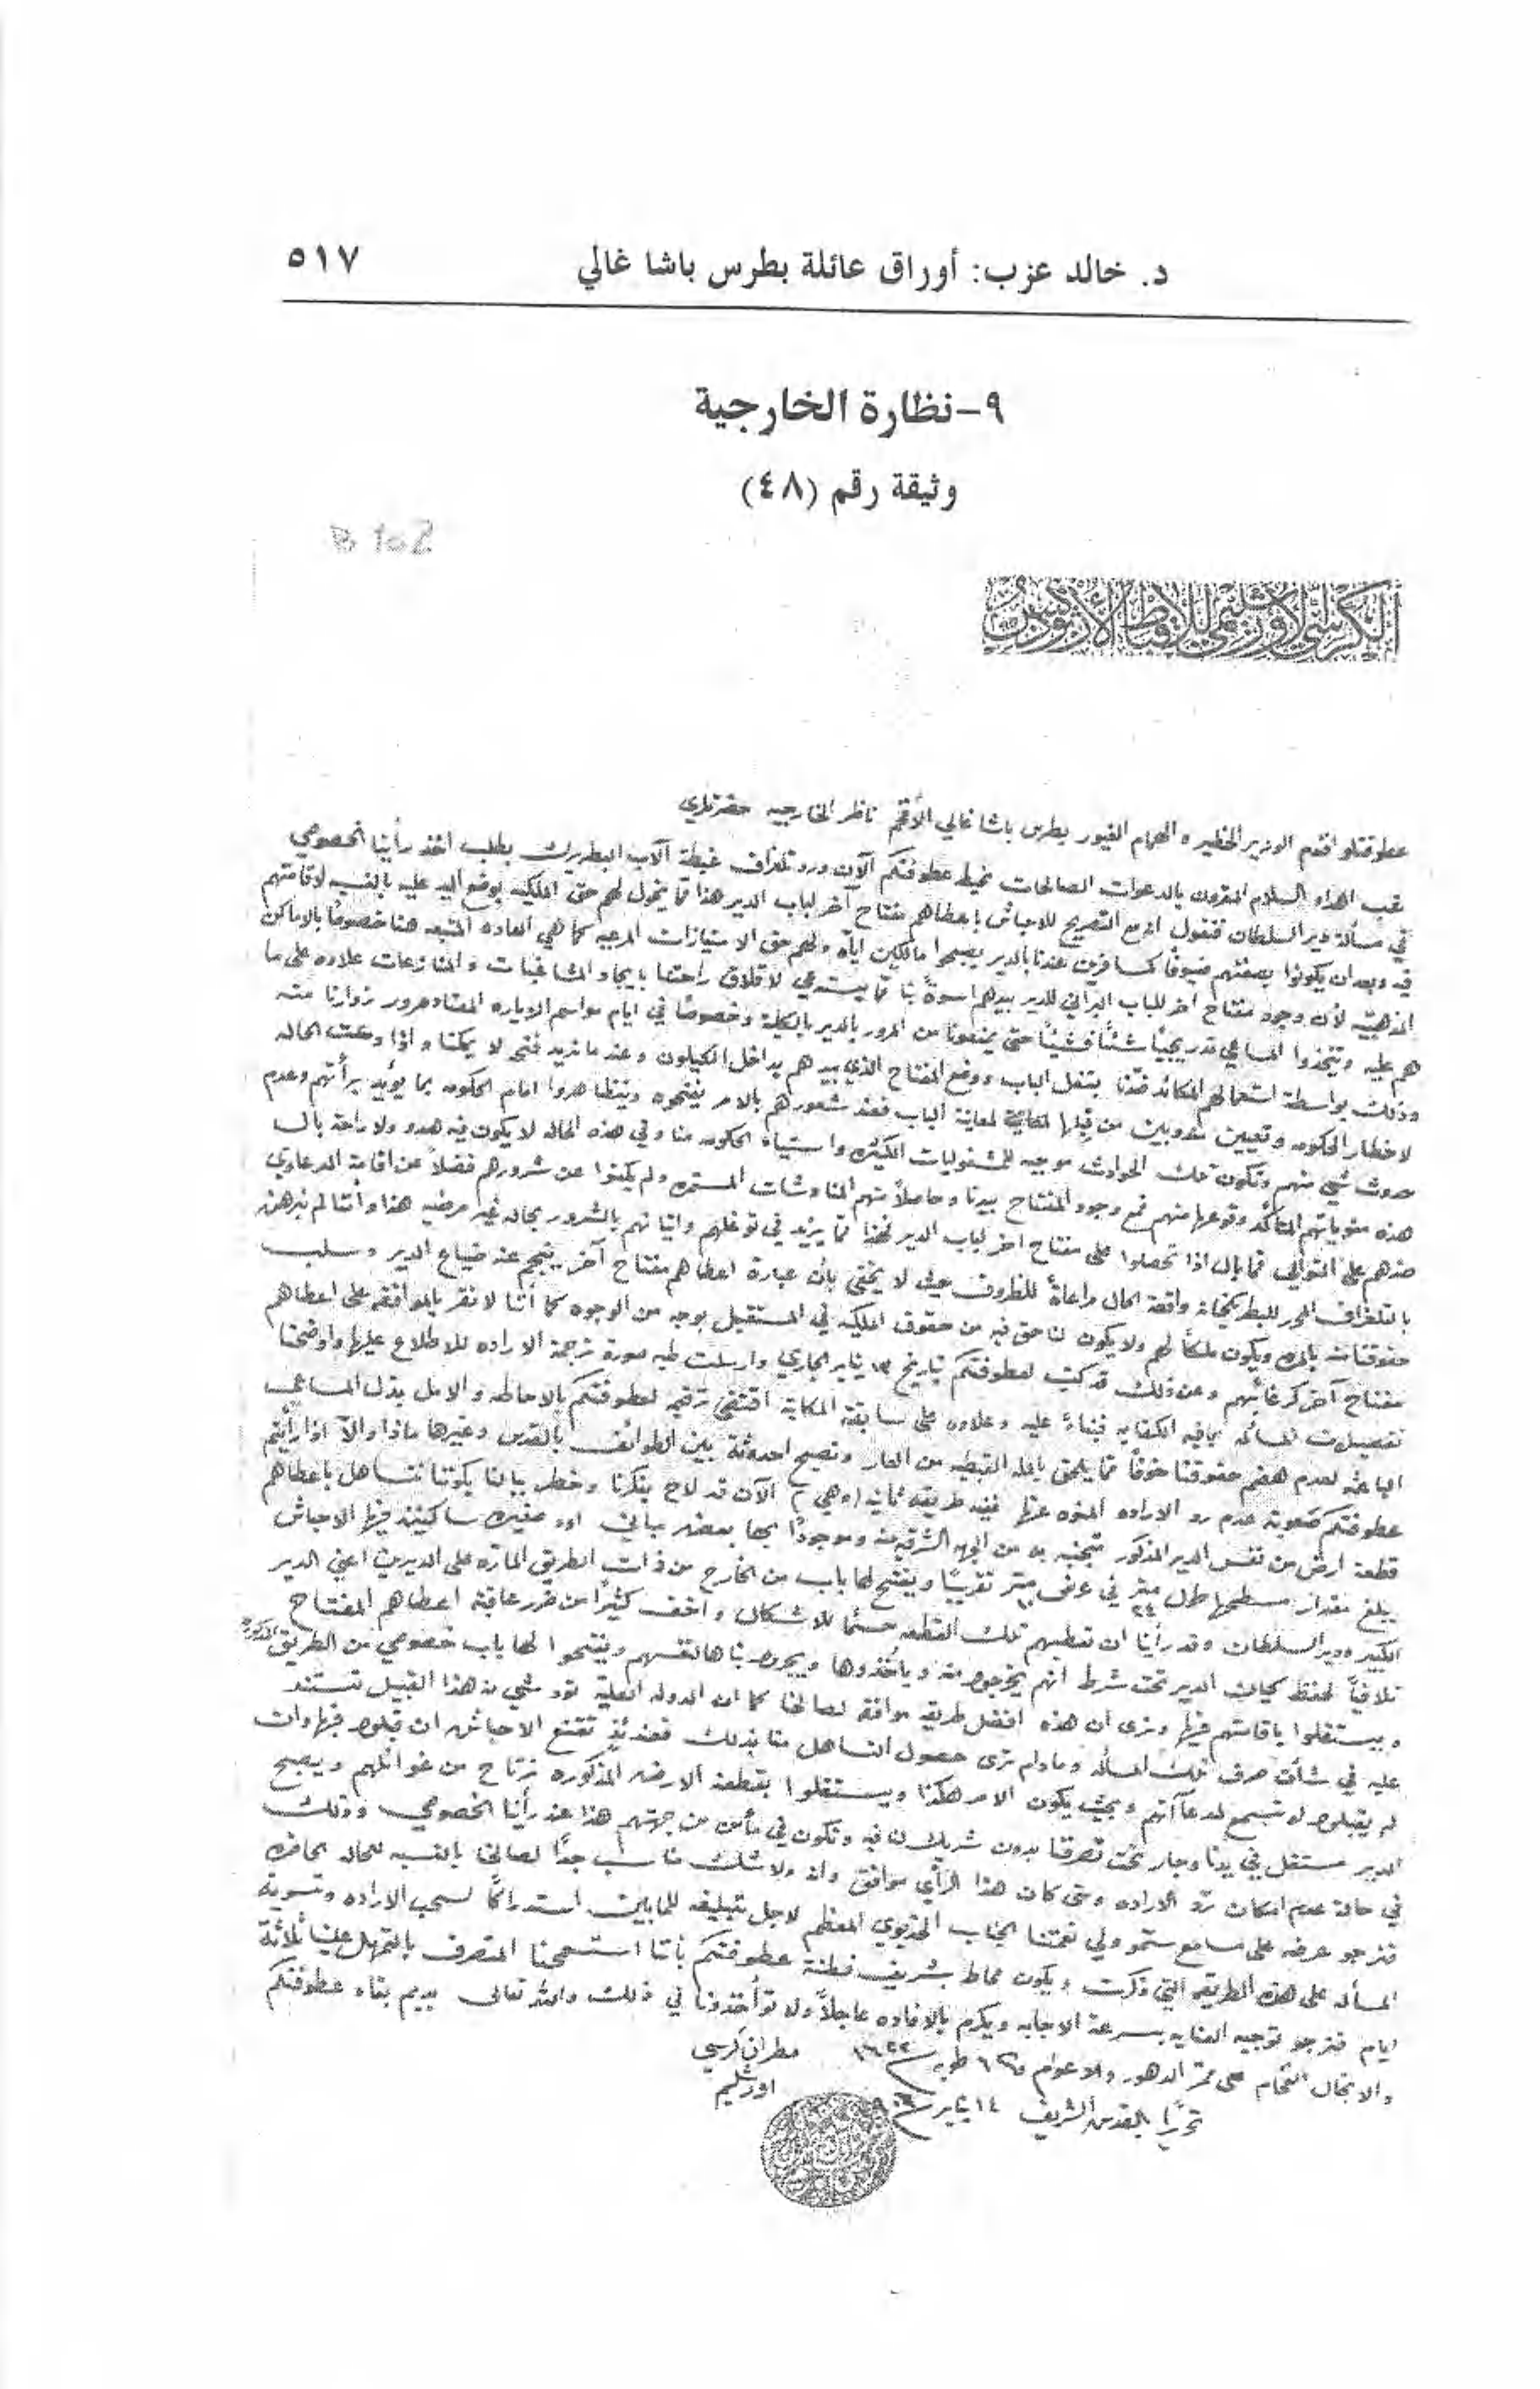 د. خالد عزب: أوراق عائلة بطرس باشا غالي
٥١٧
٩-نظارة الخارجية
وثيقة رقم (٤٨)
B 102
الكرسي الأورشليمي للأقباط الأرثوذكس
عطوفتلو افندم الوزير الخطير والهمام الغيور بطرس باشا غالي الأفخم ناظر الخارجيه حضرتلري
غب اهداء السلام المقرون بالدعوات الصالحات نحيط عطوفتكم الآن ورد تلغراف غبطة الآب البطريرك بطلب اخذ رأينا الخصوصي
في مسألة دير السلطان فنقول ان التصريح للاحباش باعطاهم مفتاح آخر لباب الدير هذا مما يخول لهم حق الملكيه بوضع اليد عليه بالنسبه لاقامتهم
فيه وبعد ان يكونوا بصفتهم ضيوفًا كمسافرين عندنا بالدير يصبحوا مالكين اياه ولهم حق الامتيازات المرعيه كما هي العاده المتبعه هنا خصوصًا بالاماكن
المذهبيه لأن وجود مفتاح اخر للباب البراني للدير بيدهم اسوةً بنا مما يستدعي لاقلاق راحتنا بايجاد المشاغبات والمنازعات علاوه على ما
هم عليه ويتخذوا المساعي تدريجيًا شئنًا فشيئًا حتى يمنعونا من المرور بالدير بالكلية وخصوصًا في ايام مواسم الزياره المعتاد مرور زوارنا منه
وذلك بواسطة استعمالهم المكائد ضدنا بقفل الباب ووضع المفتاح الذي بيدهم بداخل الكيلون وعند ما نريد فتحه لا يمكنا واذا دعت الحاله
لاخطار الحكومه وتعيين مندوبين من قبلها لمعاينة الباب فعند شعورهم بالامر يفتحوه ويتظاهروا امام الحكومه بما يؤيد برأتهم وعدم
حدوث شيئ منهم وتكون تلك الحوادث موجبه للمسئوليات الكثيره واستياء الحكومه منا وفي هذه الحاله لا يكون فيه هدو ولا راحة بال
هذه منوياتهم المتأكد وقوعها منهم فمع وجود المفتاح بيدنا وحاصلاً منهم المناوشات المستمره ولم يكفوا عن شرورهم فضلاً عن اقامة الدعاوي
ضدهم على التوالي فما بال اذا تحصلوا على مفتاح اخر لباب الدير فهذا مما يزيد في توغلهم واتيانهم بالشرور بحاله غير مرضيه هذا واننا لم نبرهن
بالتلغراف المحرر للبطريكخانة واقعة الحال مراعاةً للظروف حيث لا يخفى بأن عبارة اعطاهم مفتاح آخر ينجم عنه ضياع الدير وسلب
حقوقنا منه بالمره ويكون ملكًا لهم ولا يكون لنا حق فيه من حقوق الملكيه في المستقبل بوجه من الوجوه كما أننا لا نقر بالموافقه على اعطاهم
مفتاح آخر كرغائبهم وعن ذلك قد كتبت لعطوفتكم بتاريخ ١٣ يناير الجاري وارسلت طيه صورة ترجمة الاراده للاطلاع عليها واوضحنا
تفصيلات المسأله بما فيه الكفايه فبناءً عليه وعلاوه على سابقة المكاتبة اقتضى ترقيمه لعطوفتكم بالاحاطه والامل بذل المساعي
الباعثه لعدم هضم حقوقنا خوفًا مما يلحق بالمله القبطيه من العار ونصبح احدوثة بين الطوائف بالقدس وغيرها ماذا والآ اذا رأيتم
عطوفتكم صعوبة عدم رد الاراده المنوه عنها فيه طريقه ثانيه (وهي) الآن قد لاح بفكرنا وخطر ببالنا بكوننا نتساهل باعطاهم
قطعة ارض من نفس الدير المذكور متجنبه به من الجهه الشرقيه منه وموجودًا بها بعض مباني اود صغيره ساكنين فيها الاحباش
يبلغ مقدار مسطحها طول ٢٤ متر في عرض ١٠ متر تقريبًا ويفتح لها باب من الخارج من ذات الطريق الماره على الديرين اعني الدير
الكبير ودير السلطان وقد رأينا ان نعطيهم تلك القطعه حسمًا للاشكال واخف كثيرًا من ضرر عاقبة اعطاهم المفتاح
تلافيًا لحفظ كيان الدير تحت شرط انهم يخرجوا منه ويأخذوها ويحوطوا بناها لنفسهم ويفتحوا لها باب خصوصي من الطريق المذكوره
ويستقلوا باقامتهم فيها ونرى ان هذه افضل طريقه موافقه لصالحنا كما ان الدوله العليه تود شيئ من هذا القبيل تستند
عليه في شأن صرف تلك المسأله ومادام نرى حصول التساهل منا بذلك فعندئذٍ تقنع الاحباش ان قبلوا فبها وان
لم يقبلوا لم تسمع لهم دعآتهم وبحيث يكون الامر هكذا ويستقلوا بقطعة الارض المذكوره نرتاح من غوائلهم ويصبح
الدير مستقل في يدنا وجار تحت تصرفنا بدون شريك لنا فيه ونكون في مأمن من جهتهم هذا عند رأينا الخصوصي وذلك
في حالة عدم امكان رد الاراده ومتى كان هذا الرأي موافق وانه ولا شك مناسب جدًا لصالحنا بالنسبه للحاله الحاضره
فنرجو عرضه على مسامع سمو ولي نعمتنا الجناب الخديوي المعظم لاجل تبليغه للمابين استدراكًا لسحب الاراده وتسوية
المسأله على هذه الطريقه التي ذكرت ويكون محاط بشريف فطنة عطوفتكم بأننا استسمحنا المتصرف بالتمهل علينا ثلاثة
ايام فنرجو توجيه العنايه بسرعة الاجابه ويكرم بالافاده عاجلاً ولا تؤاخذونا في ذلك والله تعالى يديم بقاء عطوفتكم
والانجال الفخام على ممر الدهور والاعوام ٦ طوبه ١٦٢٢
مطران كرسي
اورشليم
تحريرًا بالقدس الشريف ١٤ يناير